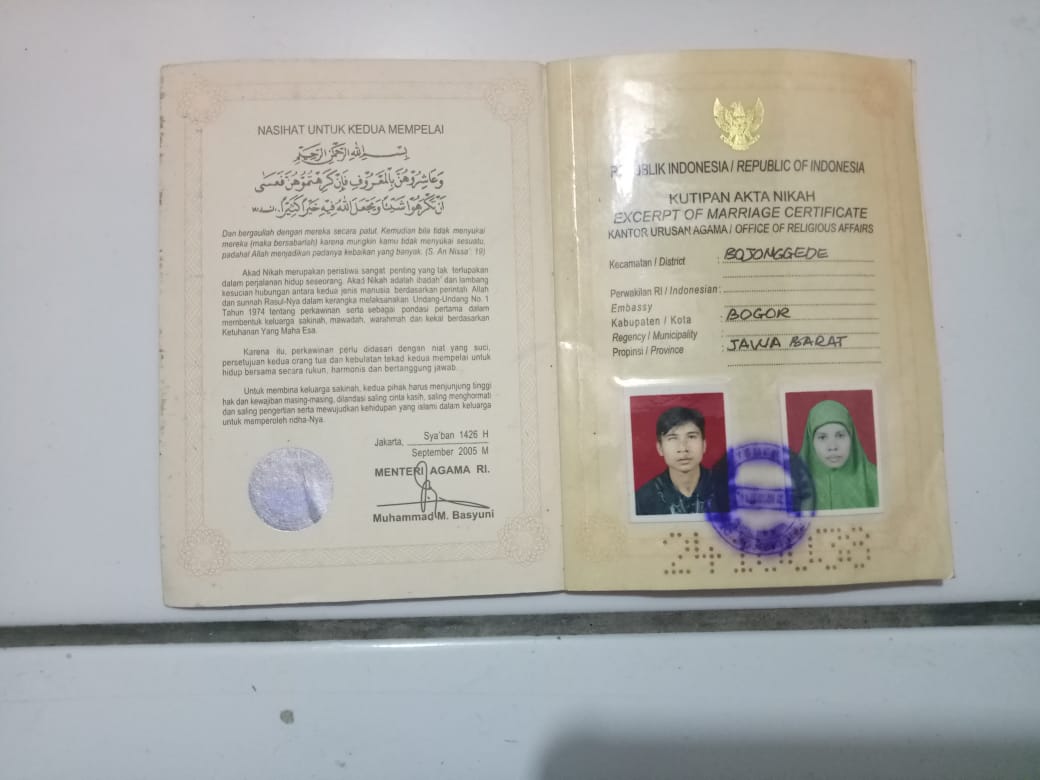 NASIHAT UNTUK KEDUA MEMPELAI
بِسْــمِ اللهِ الرَّحْمٰنِ الرَّحِيْمِ
وَعَاشِرُوْهُنَّ بِالْمَعْرُوْفِ فَاِنْ كَرِهْتُمُوْهُنَّ فَعَسٰى
اَنْ تَكْرَهُوْا شَيْئًا وَيَجْعَلَ اللهُ فِيْهِ خَيْرًا كَثِيْرًا.
Dan bergaullah dengan mereka secara patut. Kemudian bila tidak menyukai
mereka (maka bersabarlah) karena mungkin kamu tidak menyukai sesuatu,
padahal Allah menjadikan padanya kebaikan yang banyak. (S. An Nissa': 19)
Akad Nikah merupakan peristiwa sangat penting yang tak terlupakan
dalam perjalanan hidup seseorang. Akad Nikah adalah ibadah dan lambang
kesucian hubungan antara kedua jenis manusia berdasarkan perintah Allah
dan sunnah Rasul-Nya dalam kerangka melaksanakan Undang-Undang No. 1
Tahun 1974 tentang perkawinan serta sebagai pondasi pertama dalam
membentuk keluarga sakinah, mawadah, warahmah dan kekal berdasarkan
Ketuhanan Yang Maha Esa.
Karena itu, perkawinan perlu didasari dengan niat yang suci,
persetujuan kedua orang tua dan kebulatan tekad kedua mempelai untuk
hidup bersama secara rukun, harmonis dan bertanggung jawab.
Untuk membina keluarga sakinah, kedua pihak harus menjunjung tinggi
hak dan kewajiban masing-masing, dilandasi saling cinta kasih, saling menghormati
dan saling pengertian serta mewujudkan kehidupan yang islami dalam keluarga
untuk memperoleh ridha-Nya.
Jakarta, Sya'ban 1426 H
September 2005 M
MENTERI AGAMA RI.
Muhammad M. Basyuni
REPUBLIK INDONESIA / REPUBLIC OF INDONESIA
KUTIPAN AKTA NIKAH
EXCERPT OF MARRIAGE CERTIFICATE
KANTOR URUSAN AGAMA / OFFICE OF RELIGIOUS AFFAIRS
Kecamatan / District : BOJONGGEDE
Perwakilan RI / Indonesian :
Embassy
Kabupaten / Kota : BOGOR
Regency / Municipality
Propinsi / Province : JAWA BARAT